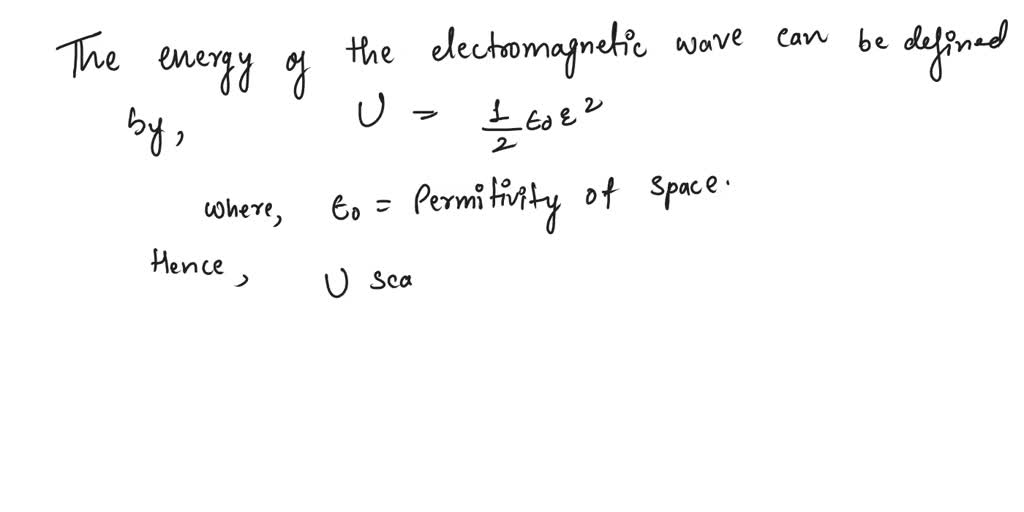 The energy of the electromagnetic wave can be defined
by, U = 1/2 ε0 ε²
where, ε0 = Permitivity of space.
Hence, U sca